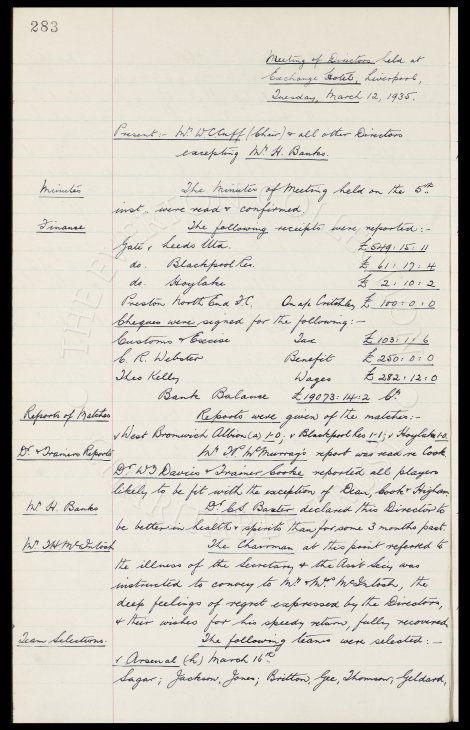 283
Meeting of Directors held at
Exchange Hotel, Liverpool,
Tuesday, March 12, 1935.
Present:- Mr. W C Cuff (Chair) & all other Directors
excepting Mr. H. Banks.
Minutes The Minutes of Meeting held on the 5th
inst. were read & confirmed
Finance The following receipts were reported:-
Gate v Leeds Utd. £549:15:11
do. Blackpool Res. £61:17:4
do. Hoylake £2:10:2
Preston North End F.C. On a/c Critchley £100:0:0
Cheques were signed for the following:-
Customs & Excise Tax £103:1:6
C. R. Webster Benefit £250:0:0
Theo Kelly Wages £282:12:0
Bank Balance £19073:14:2 Cr.
Reports of Matches Reports were given of the matches:-
v West Bromwich Albion (a) 1-0; v Blackpool Res 1-1; v Hoylake 1-0.
Dr. & Trainers Reports Mr. McMurray's report was read re Cook
Dr. W D Davies & Trainer Cooke reported all players
likely to be fit with the exception of Dean, Cook & Higham
Mr. H. Banks Dr. C. S. Baxter declared this Director to
be better in health & spirits than for some 3 months past.
Mr. T H McIntosh The Chairman at this point referred to
the illness of the Secretary & the Asst Secy was
instructed to convey to Mr. & Mrs. McIntosh, the
deep feelings of regret expressed by the Directors,
& their wishes for his speedy return, fully recovered
Team Selections. The following teams were selected:-
v Arsenal (h) March 16th
Sagar; Jackson, Jones; Britton, Gee, Thomson; Geldard,